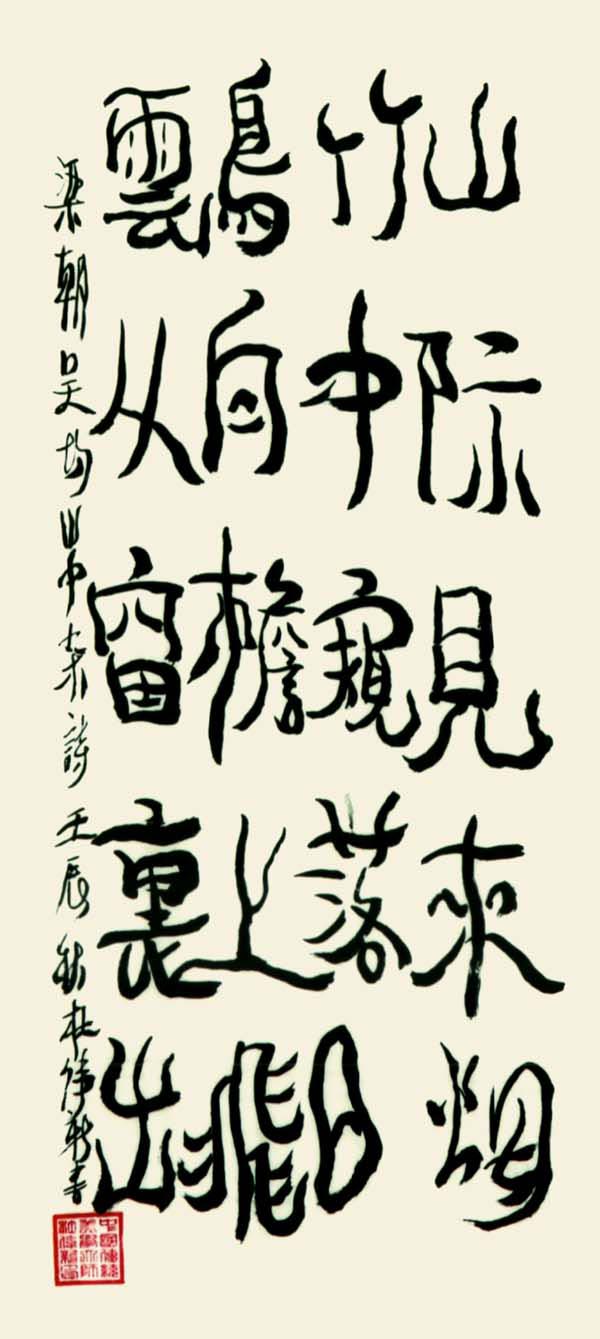 山际見來烟
竹中窺落日
鳥向檐上飛
雲从窗裏出
梁朝吴均山中杂詩 壬辰秋杜
書